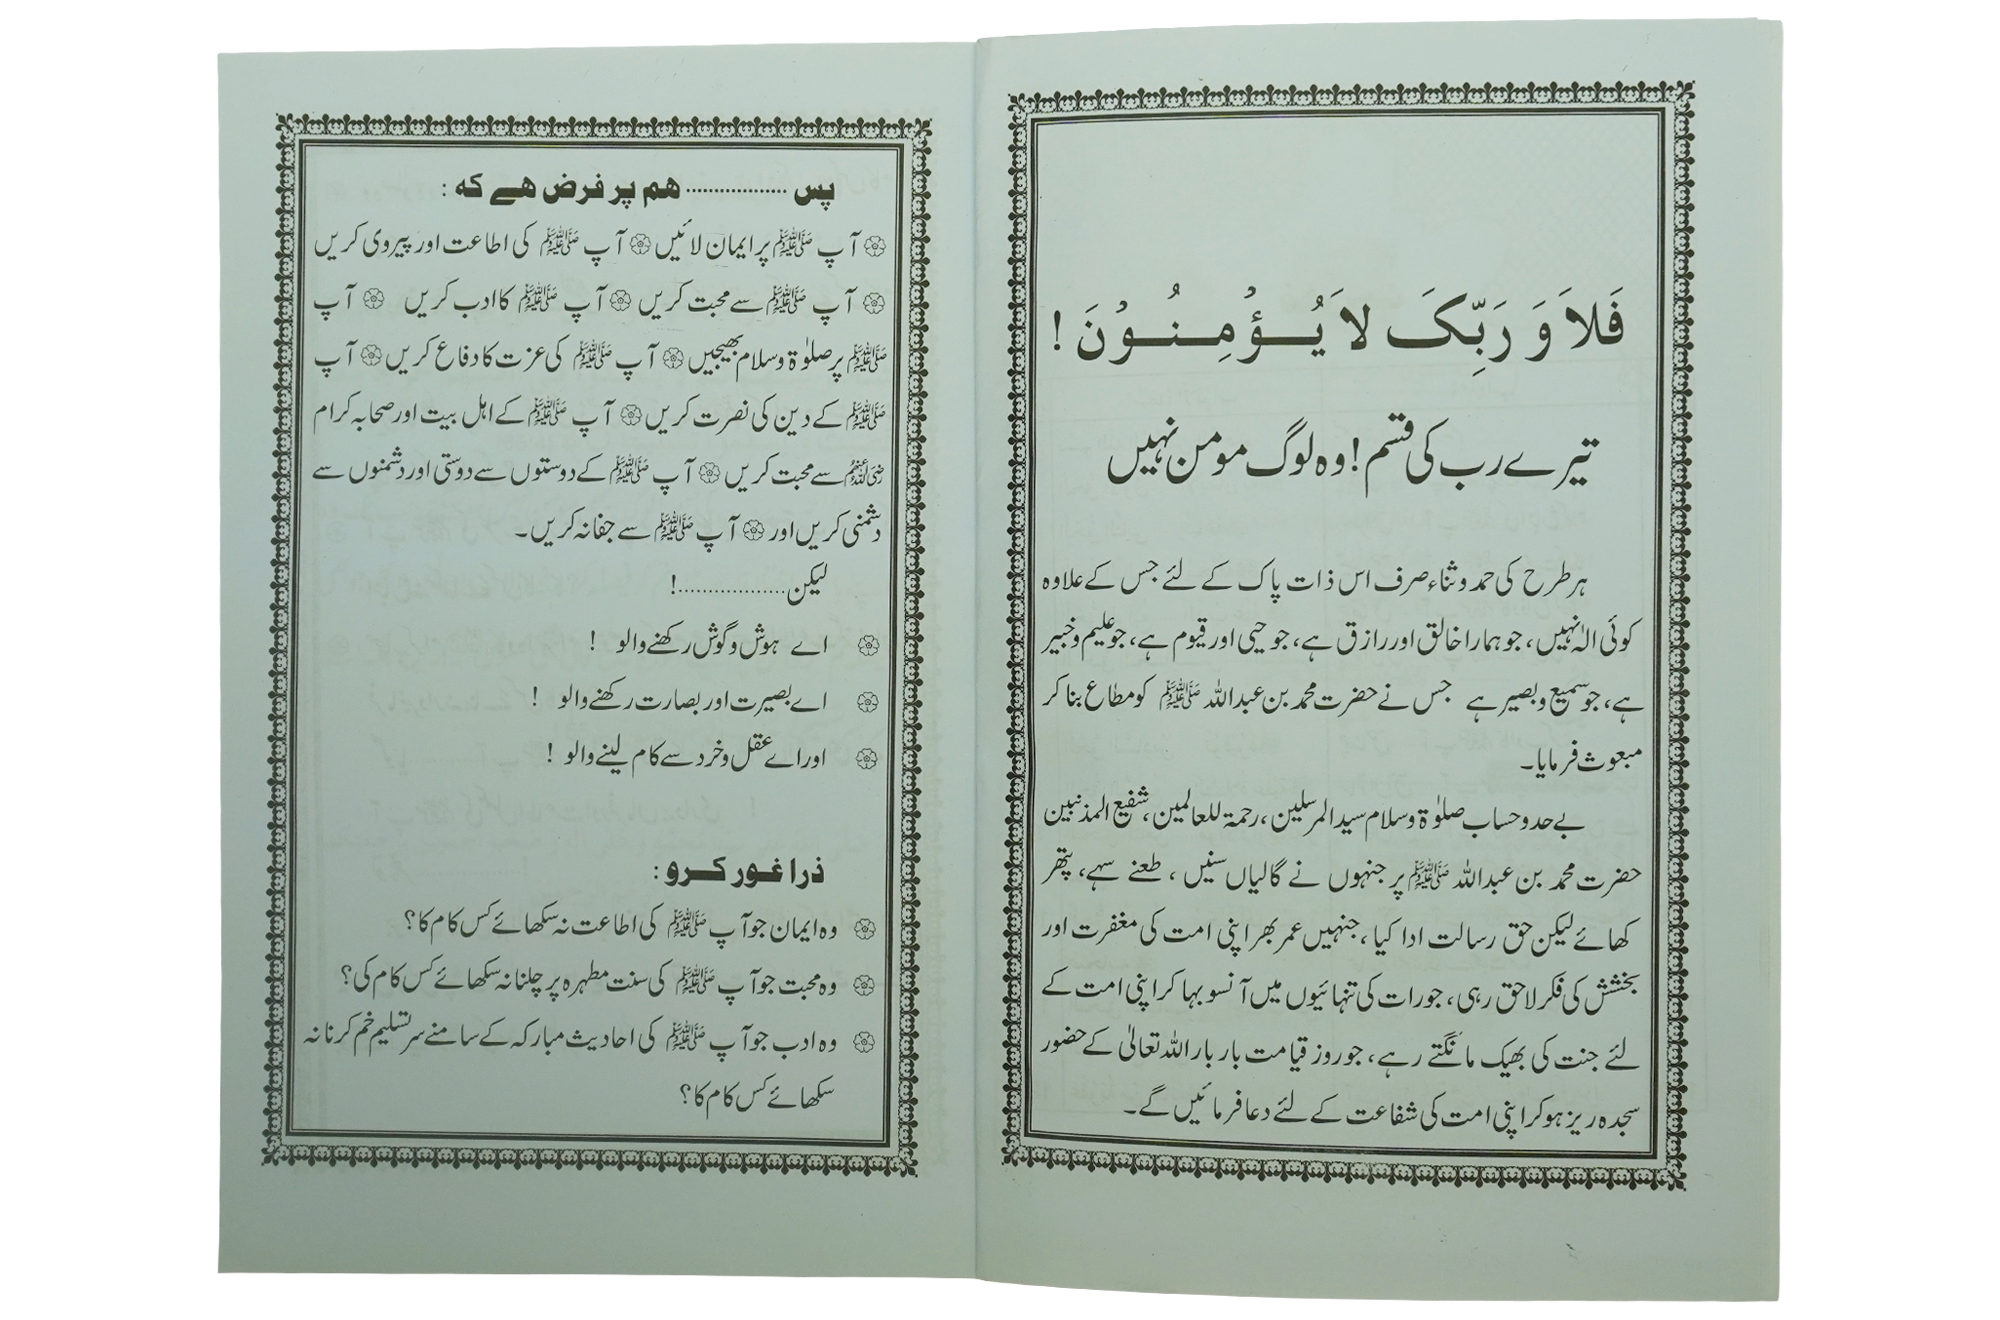 فَلاَ وَ رَبِّکَ لاَ یُـؤْمِنُـوْنَ !
تیرے رب کی قسم! وہ لوگ مومن نہیں
ہر طرح کی حمد و ثناء صرف اس ذات پاک کے لئے جس کے علاوہ
کوئی الٰہ نہیں، جو ہمارا خالق اور رازق ہے، جو حیی اور قیوم ہے، جو علیم و خبیر
ہے، جو سمیع و بصیر ہے جس نے حضرت محمد بن عبداللہ ﷺ کو مطاع بنا کر
مبعوث فرمایا۔
بے حد و حساب صلوٰۃ و سلام سید المرسلین، رحمۃ للعالمین، شفیع المذنبین
حضرت محمد بن عبداللہ ﷺ پر جنہوں نے گالیاں سنیں، طعنے سہے، پتھر
کھائے لیکن حق رسالت ادا کیا، جنہیں عمر بھر اپنی امت کی مغفرت اور
بخشش کی فکر لاحق رہی، جو رات کی تنہائیوں میں آنسو بہا کر اپنی امت کے
لئے جنت کی بھیک مانگتے رہے، جو روز قیامت بار بار اللہ تعالیٰ کے حضور
سجدہ ریز ہو کر اپنی امت کی شفاعت کے لئے دعا فرمائیں گے۔
پس .................. ہم پر فرض ہے کہ :
❁ آپ ﷺ پر ایمان لائیں ❁ آپ ﷺ کی اطاعت اور پیروی کریں
❁ آپ ﷺ سے محبت کریں ❁ آپ ﷺ کا ادب کریں ❁ آپ
ﷺ پر صلوٰۃ و سلام بھیجیں ❁ آپ ﷺ کی عزت کا دفاع کریں ❁ آپ
ﷺ کے دین کی نصرت کریں ❁ آپ ﷺ کے اہل بیت اور صحابہ کرام
رضی اللہ عنہم سے محبت کریں ❁ آپ ﷺ کے دوستوں سے دوستی اور دشمنوں سے
دشمنی کریں اور ❁ آپ ﷺ سے جفا نہ کریں۔
لیکن ..................!
❁ اے ہوش و گوش رکھنے والو !
❁ اے بصیرت اور بصارت رکھنے والو !
❁ اور اے عقل و خرد سے کام لینے والو !
ذرا غور کرو :
❁ وہ ایمان جو آپ ﷺ کی اطاعت نہ سکھائے کس کام کا؟
❁ وہ محبت جو آپ ﷺ کی سنت مطہرہ پر چلنا نہ سکھائے کس کام کی؟
❁ وہ ادب جو آپ ﷺ کی احادیث مبارکہ کے سامنے سر تسلیم خم کرنا نہ
سکھائے کس کام کا؟